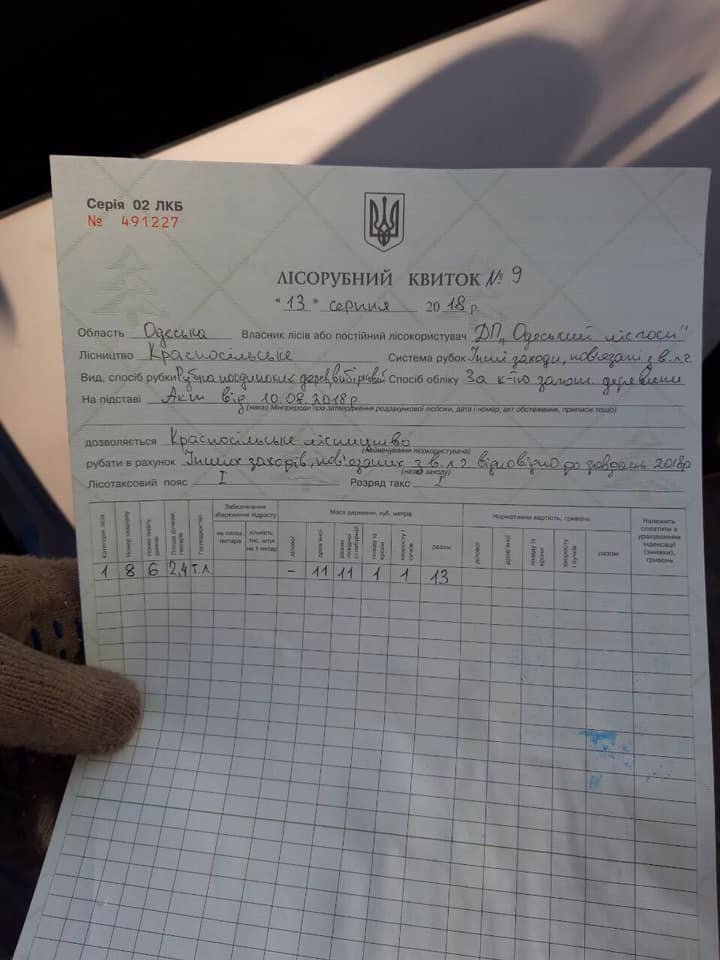 Серія 02 ЛКБ
№ 491227
ЛІСОРУБНИЙ КВИТОК № 9
"13" серпня 2018 р.
Область Одеська Власник лісів або постійний лісокористувач ДП "Одеський лісгосп"
Лісництво Красносільське Система рубок Інші заходи, пов'язані з в.л.г
Вид, спосіб рубки Рубка поодиноких дерев, вибірковий Спосіб обліку За к-тю загот. деревини
На підставі Акт від 10.08.2018р.
(наказ Мінприроди про затвердження розрахункової лісосіки, дата і номер, акт обстеження, приписи тощо)
дозволяється Красносільське лісництво
(найменування лісокористувача)
рубати в рахунок Інших заходів, пов'язаних з в.л.г. відповідно до завдань 2018р
(назва заходу)
Лісотаксовий пояс I Розряд такс I
Категорія лісів Номер кварталу Номер виділу, ділянки Площа ділянки, гектарів Господарство Забезпечення збереження підросту Маса деревини, куб. метрів Нормативна вартість, гривень Належить сплатити з урахуванням індексації (знижки), гривень
на площі гектарів кількість, тис. штук на 1 гектар ділової дров'яної разом ліквідної і стовбурної ліквіду із крони хворосту і сучків разом ділової дров'яної ліквіду із крони хворосту і сучків разом
1 8 6 2,4 т.л. - 11 11 1 1 13